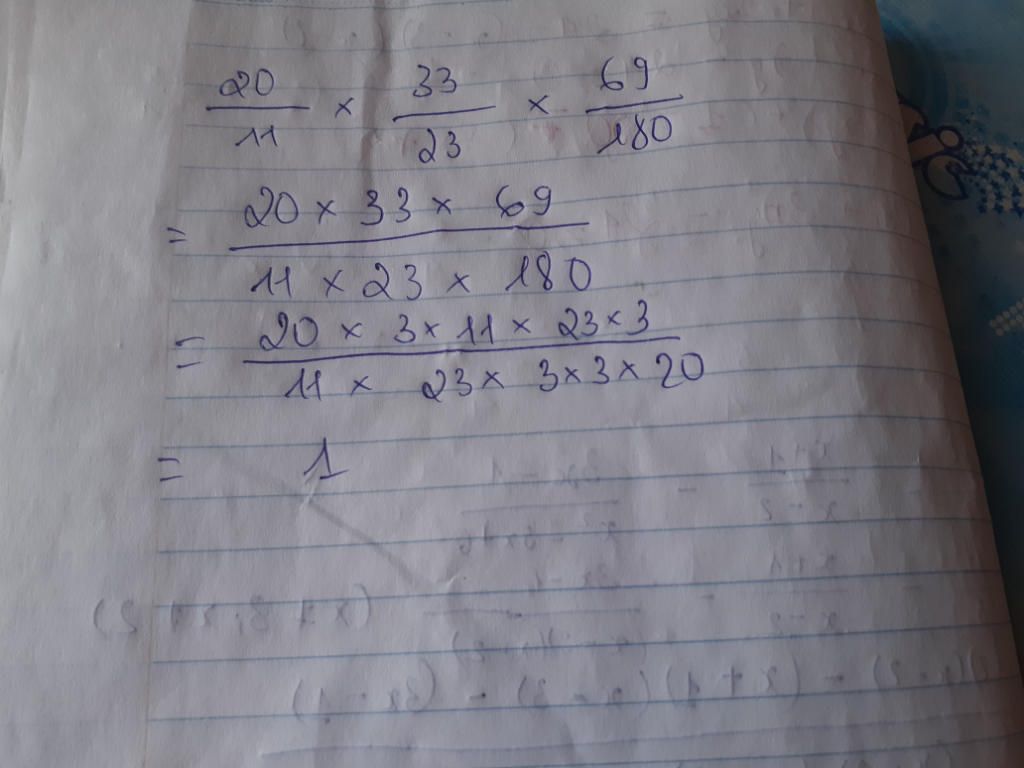 20/11 × 33/23 × 69/180
= (20 × 33 × 69)/(11 × 23 × 180)
= (20 × 3 × 11 × 23 × 3)/(11 × 23 × 3 × 3 × 20)
= 1